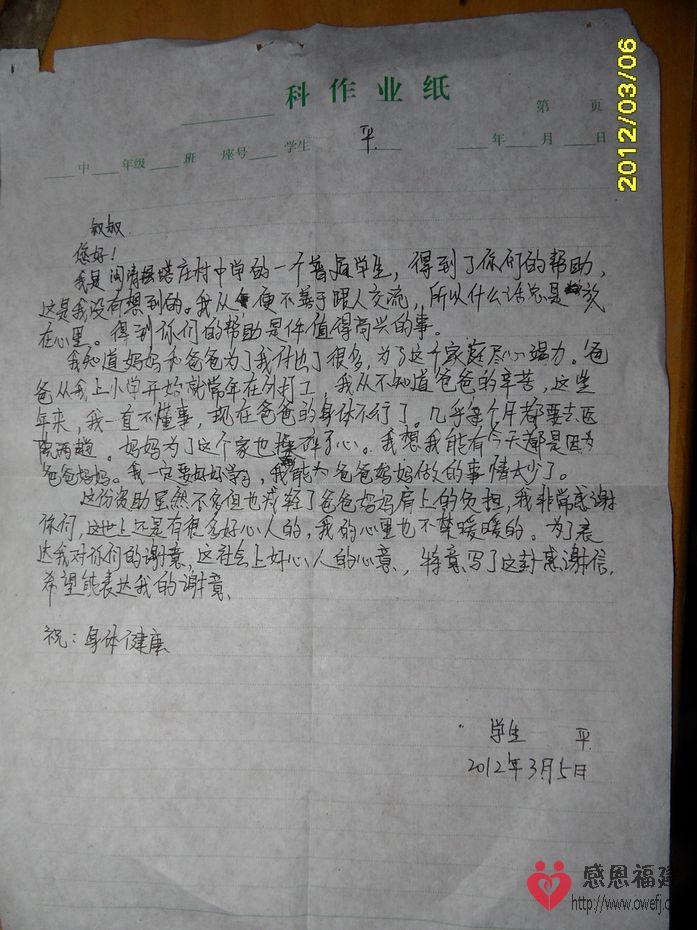 2012/03/06
科作业纸
第 页
中 年级 班 座号 学生 平 年 月 日
叔叔
您好!
我是闽清县塔庄村中学的一个普通学生,得到了你们的帮助,
这是我没有想到的。我从便不善于跟人交流,所以什么话总是放
在心里。得到你们的帮助是件值得高兴的事。
我知道妈妈和爸爸为了我付出了很多,为了这个家庭尽心竭力。爸
爸从我上小学开始就常年在外打工,我从不知道爸爸的辛苦,这些
年来,我一直不懂事,现在爸爸的身体不行了。几乎每个月都要去医
院两趟。妈妈为了这个家也操碎了心。我想我能有今天都是因为
爸爸妈妈。我一定要好好学习,我能为爸爸妈妈做的事情太少了。
这份资助虽然不多但也减轻了爸爸妈妈肩上的负担,我非常感谢
你们,这世上还是有很多好心人的,我的心里也不禁暖暖的。为了表
达我对你们的谢意,这社会上好心人的心意,特意写了这封感谢信,
希望能表达我的谢意。
祝:身体健康
学生 平
2012年3月5日
感恩福建
http://www.owefj.c